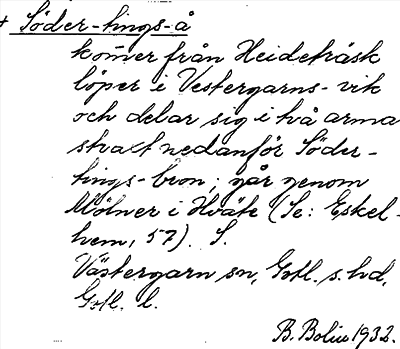 + Söder-tings-å
kom̄er från Heideträsk
löper i Vestergarns-vik
och delar sig i två arma
strax nedanför Söder-
tings-bron; går genom
Mölner i Hväte (Se: Eskel-
hem, 57). S.
Västergarn sn, Gotl. s. hd,
Gotl. l.
B. Bolin 1932.